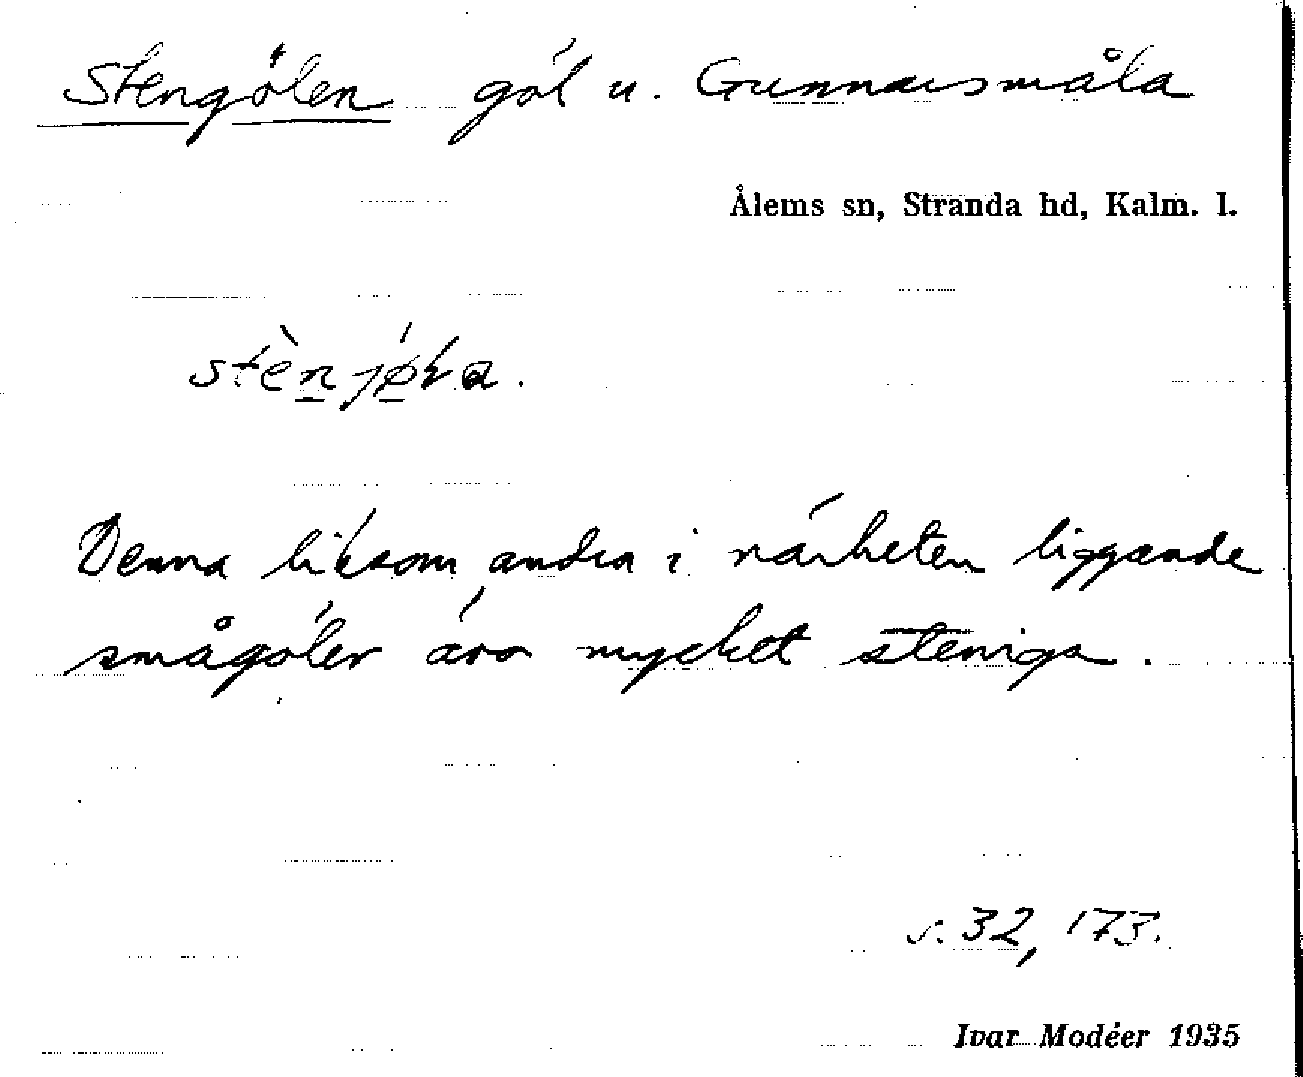 Stengölen göl u. Gunnarsmåla
Ålems sn, Stranda hd, Kalm. l.
Denna liksom andra i närheten liggande
smågölar äro mycket steniga.
s. 32, 173.
Ivar Modéer 1935